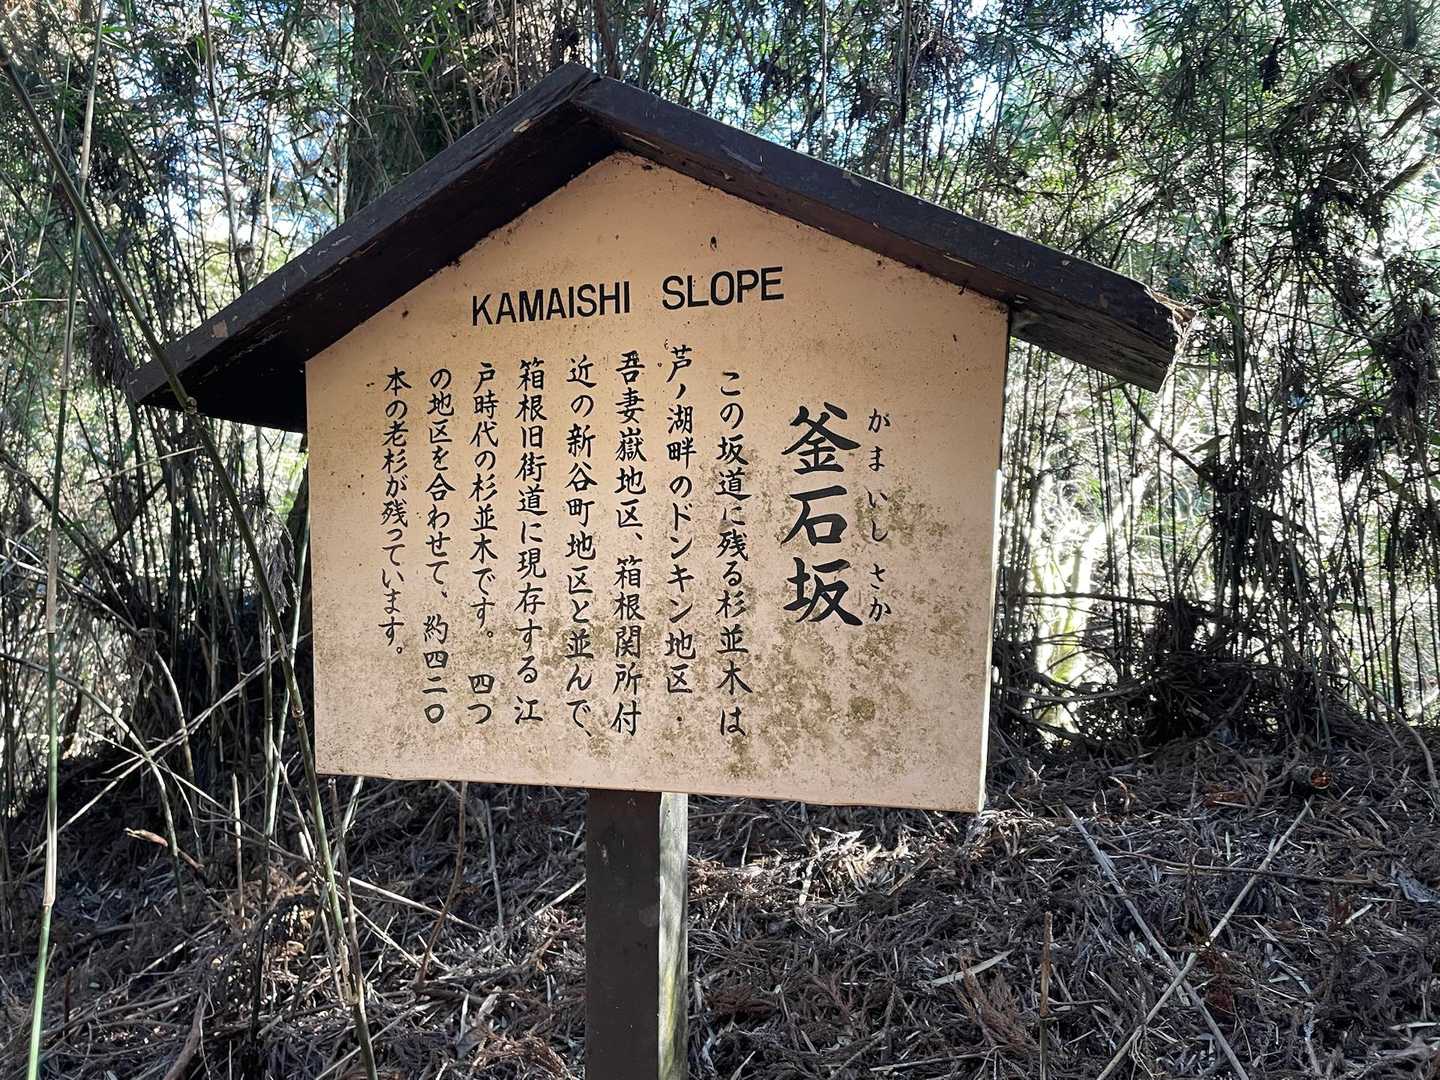 KAMAISHI SLOPE
がまいしさか
釜石坂
この坂道に残る杉並木は
芦ノ湖畔のドンキン地区・
吾妻嶽地区、箱根関所付
近の新谷町地区と並んで、
箱根旧街道に現存する江
戸時代の杉並木です。四つ
の地区を合わせて、約四二〇
本の老杉が残っています。